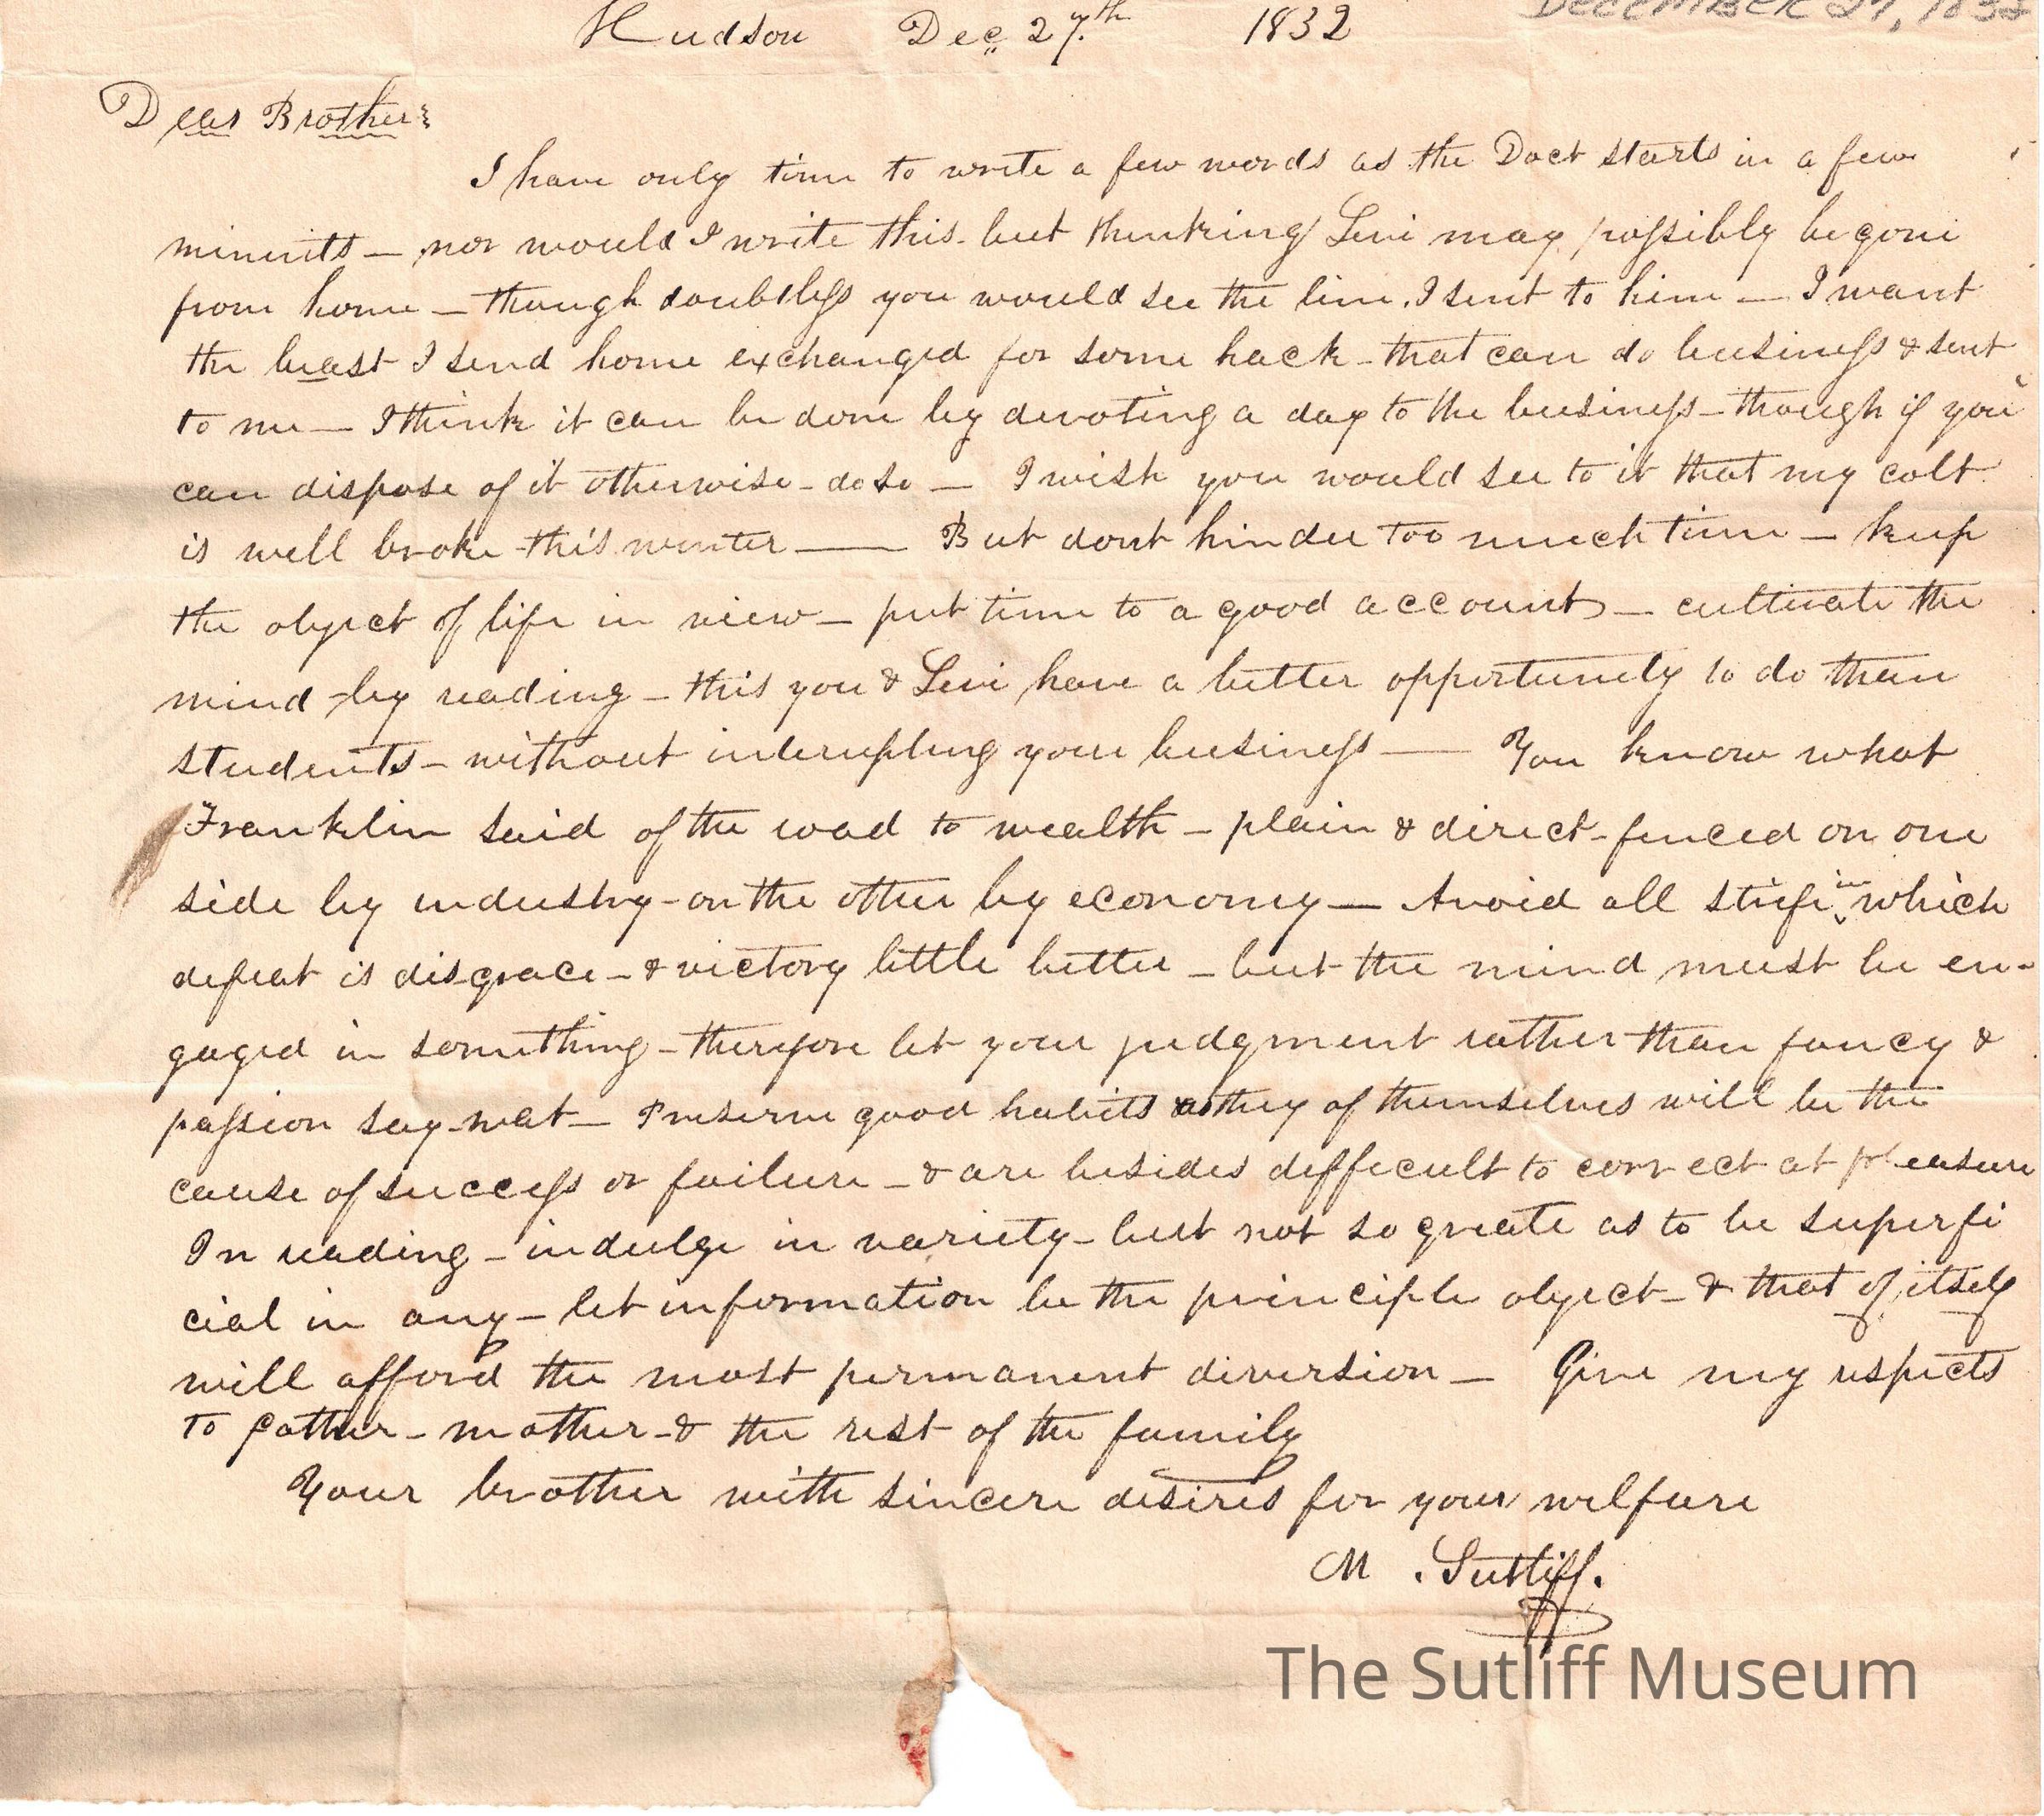 DECEMBER 27, 1832
Hudson Dec. 27th 1832
Dear Brother
I have only time to write a few words as the Doct starts in a few
minuits — nor would I write this - but thinking Levi may possibly be gone
from home — though doubtless you would see the line I sent to him — I want
the beast I send home exchanged for some hack - that can do business & sent
to me — I think it can be done by devoting a day to the business - though if you
can dispose of it otherwise - do so — I wish you would see to it that my colt
is well broke this winter — But dont hinder too much time — keep
the object of life in view — put time to a good account — cultivate the
mind - by reading — this you & Levi have a better opportunity to do than
students — without interupting your business — You know what
Franklin said of the road to wealth — plain & direct - fenced on one
side by industry - on the other by economy — Avoid all strife in which
defeat is disgrace — & victory little better — but the mind must be en-
gaged in something — therefore let your judgment rather than fancy &
passion say wat — Preserve good habits as they of themselves will be the
cause of success or failure — & are besides difficult to correct at pleasure
In reading — indulge in variety - but not so greate as to be superfi
cial in any — let information be the principle object — & that of itself
will afford the most permanent diversion — Give my respects
to father - mother - & the rest of the family
Your brother with sincere desires for your welfare
M. Sutliff.
The Sutliff Museum